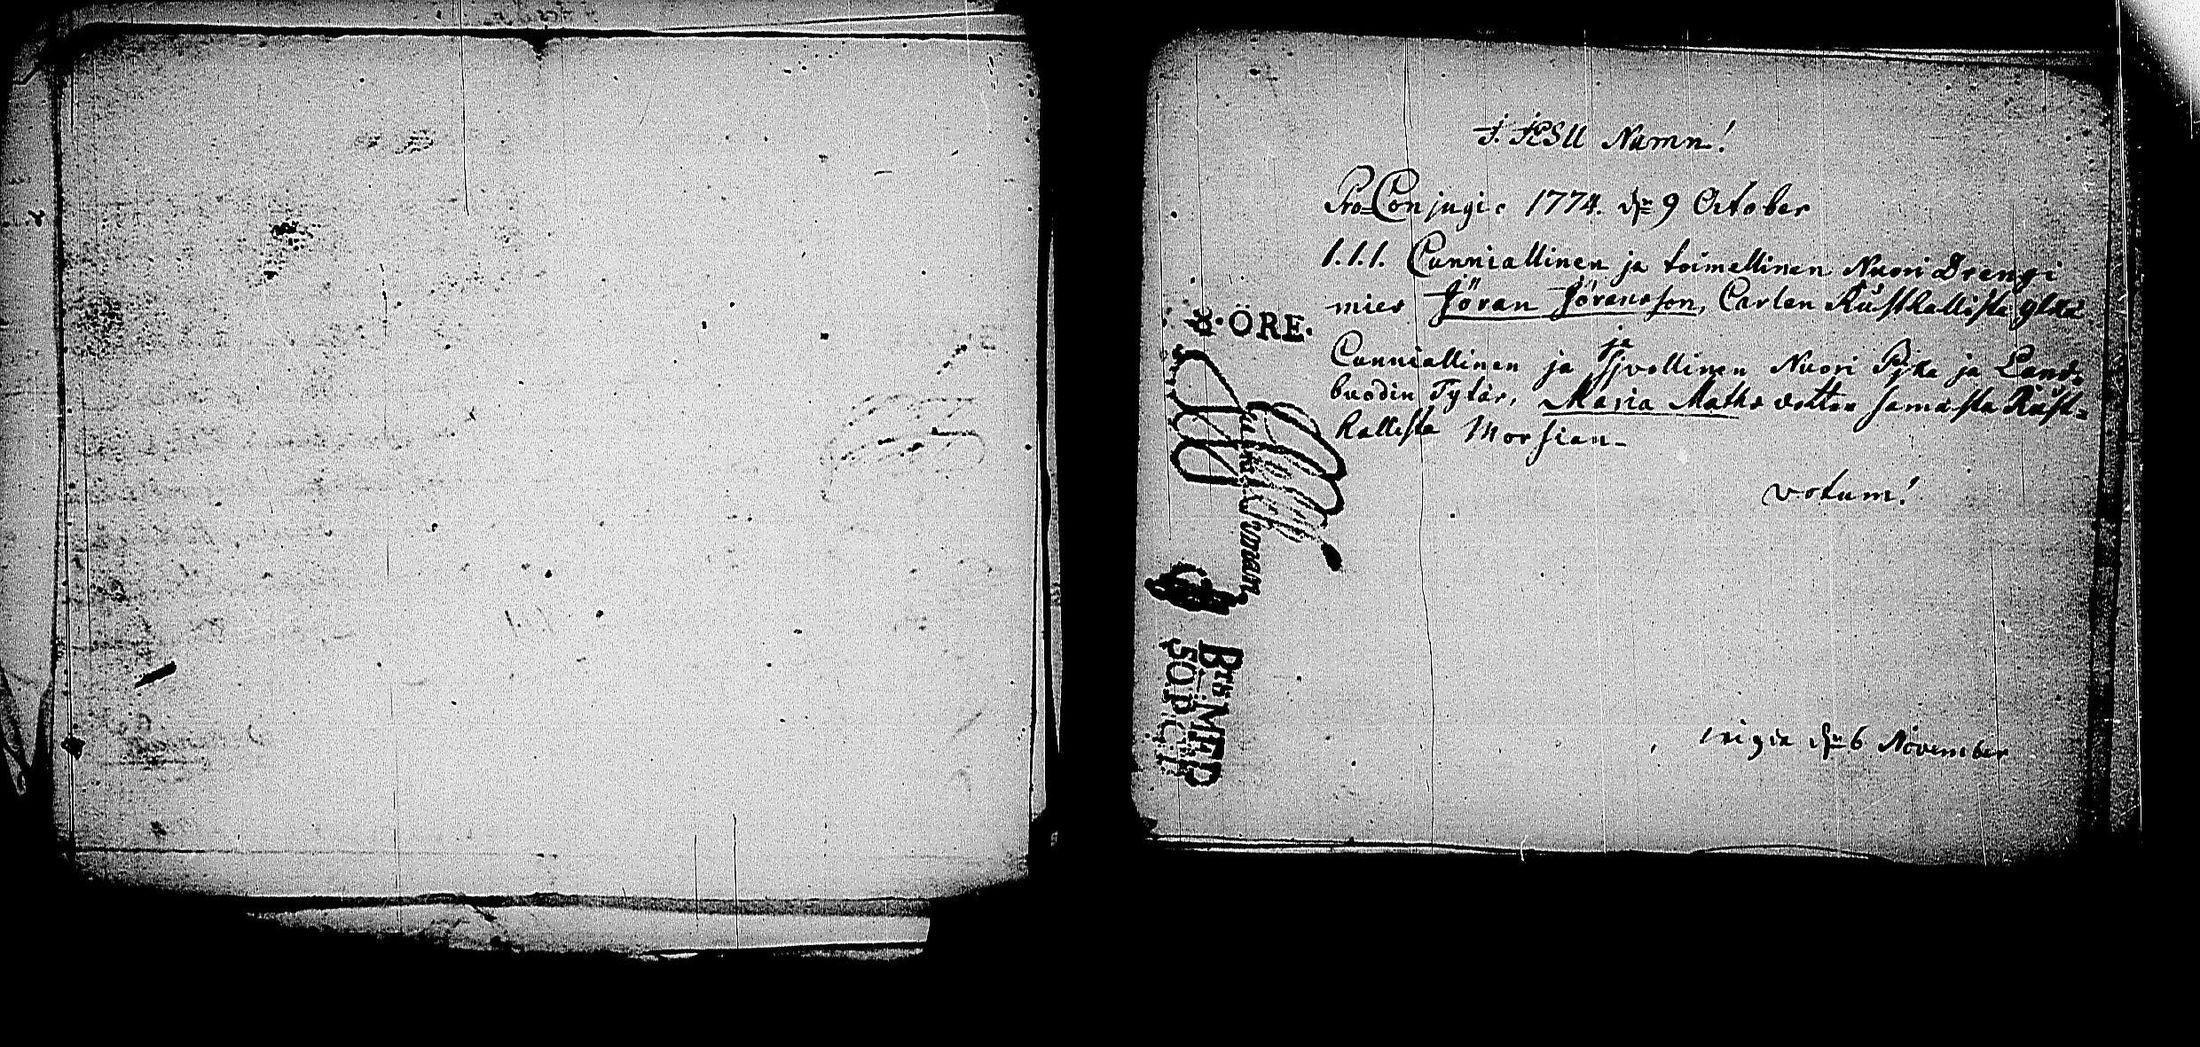 J. JESU Namn!
Pro Conjugio 1774. dn 9 October
1.1.1. Cunniallinen ja toimellinen Nuori Drengi
mies Jöran Jöransson, Carlen Rusthallista ynnä
8. ÖRE.
ja
Cunniallinen ja Sjvellinen Nuori Pjka ja Land-
buodin Tytär, Maria Mathsdotter samasta Rust-
hallista Morsian-
votum!
vigde dn 6 November